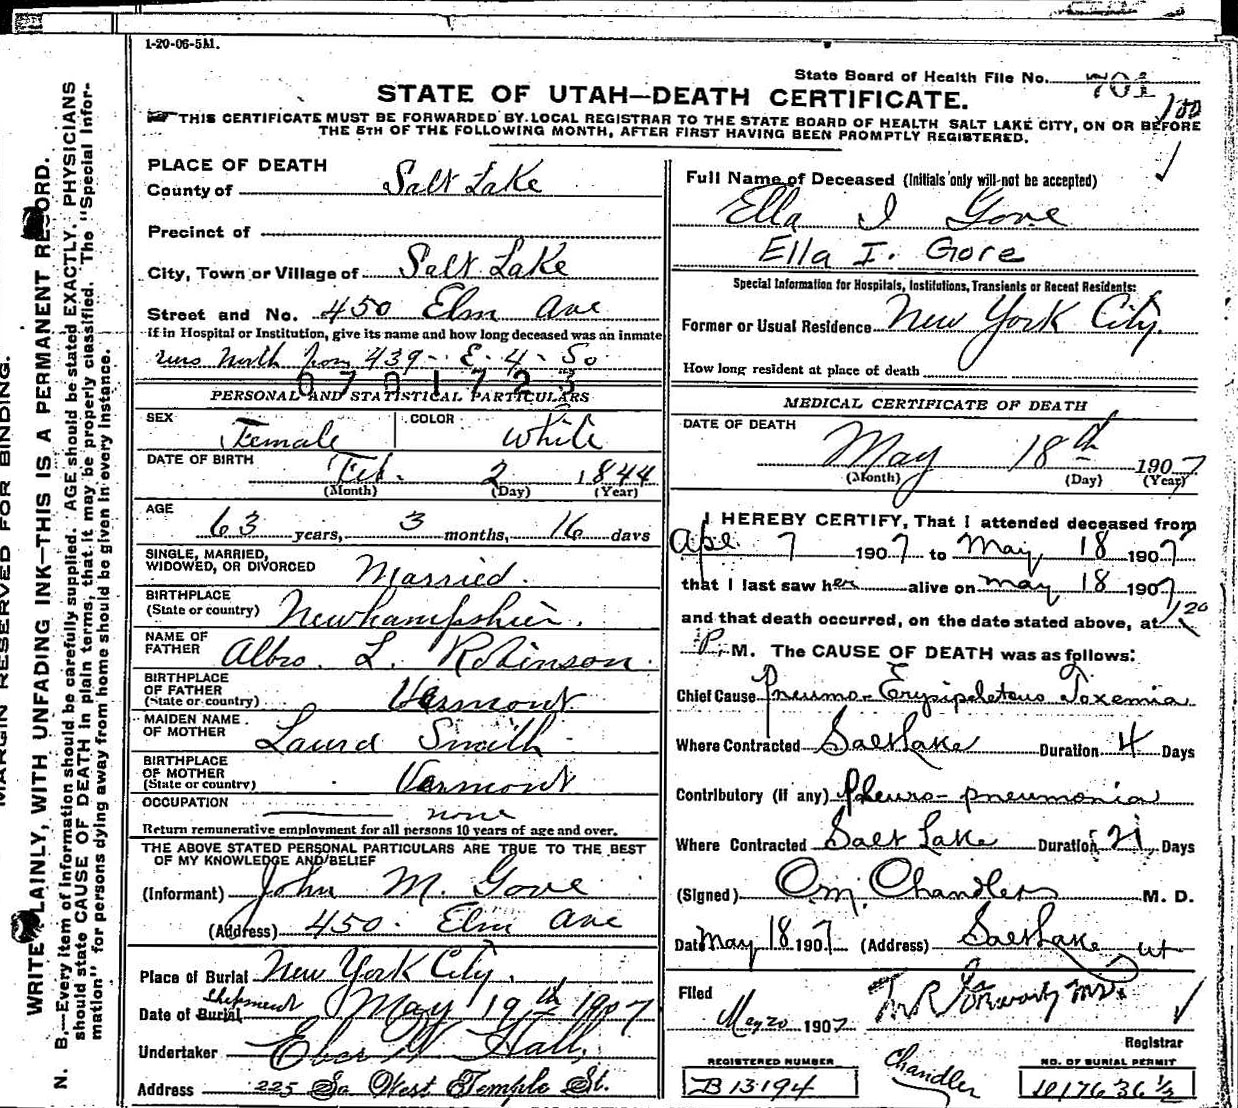 1-20-06-5M.
State Board of Health File No. 701
STATE OF UTAH—DEATH CERTIFICATE.
100
THIS CERTIFICATE MUST BE FORWARDED BY LOCAL REGISTRAR TO THE STATE BOARD OF HEALTH SALT LAKE CITY, ON OR BEFORE
THE 5TH OF THE FOLLOWING MONTH, AFTER FIRST HAVING BEEN PROMPTLY REGISTERED.
MARGIN RESERVED FOR BINDING.
WRITE PLAINLY, WITH UNFADING INK—THIS IS A PERMANENT RECORD.
N. B.—Every item of information should be carefully supplied. AGE should be stated EXACTLY. PHYSICIANS
should state CAUSE OF DEATH in plain terms, that it may be properly classified. The "Special Infor-
mation" for persons dying away from home should be given in every instance.
PLACE OF DEATH
County of Salt Lake
Precinct of
City, Town or Village of Salt Lake
Street and No. 450 Elm Ave
If in Hospital or Institution, give its name and how long deceased was an inmate
runs North from 439 - E - 4 - So
0701723
PERSONAL AND STATISTICAL PARTICULARS
SEX Female COLOR White
DATE OF BIRTH Feb. 2 1844
(Month) (Day) (Year)
AGE 63 years, 3 months, 16 days
SINGLE, MARRIED,
WIDOWED, OR DIVORCED Married.
BIRTHPLACE
(State or country) Newhampshier.
NAME OF
FATHER Albro. L. Robinson.
BIRTHPLACE
OF FATHER
(State or country) Vermont
MAIDEN NAME
OF MOTHER Laura Smith
BIRTHPLACE
OF MOTHER
(State or country) Vermont
OCCUPATION none
Return remunerative employment for all persons 10 years of age and over.
THE ABOVE STATED PERSONAL PARTICULARS ARE TRUE TO THE BEST
OF MY KNOWLEDGE AND/BELIEF
(Informant) John M. Gove
(Address) 450. Elm Ave
Place of Burial New York City.
Date of Burial Shipment May 19th 1907
Undertaker Eber W Hall,
Address 225 So West Temple St.
Full Name of Deceased (Initials only will not be accepted)
Ella I Gove
Ella I. Gore
Special Information for Hospitals, Institutions, Transients or Recent Residents:
Former or Usual Residence New York City.
How long resident at place of death
MEDICAL CERTIFICATE OF DEATH
DATE OF DEATH
May 18th 1907
(Month) (Day) (Year)
I HEREBY CERTIFY, That I attended deceased from
Apl. 7 1907 to May, 18 1907
that I last saw her alive on May 18 1907
and that death occurred, on the date stated above, at 1 20
P. M. The CAUSE OF DEATH was as follows:
Chief Cause Pneumo-Erysipeletous Toxemia
Where Contracted Salt Lake Duration 4 Days
Contributory (if any) Pleuro-pneumonia
Where Contracted Salt Lake Duration 21 Days
(Signed) Chandler M. D.
Date May 18 1907 (Address) Salt Lake Ut
Filed
May 20 1907
Registrar
REGISTERED NUMBER
B 13194
Chandler
NO. OF BURIAL PERMIT